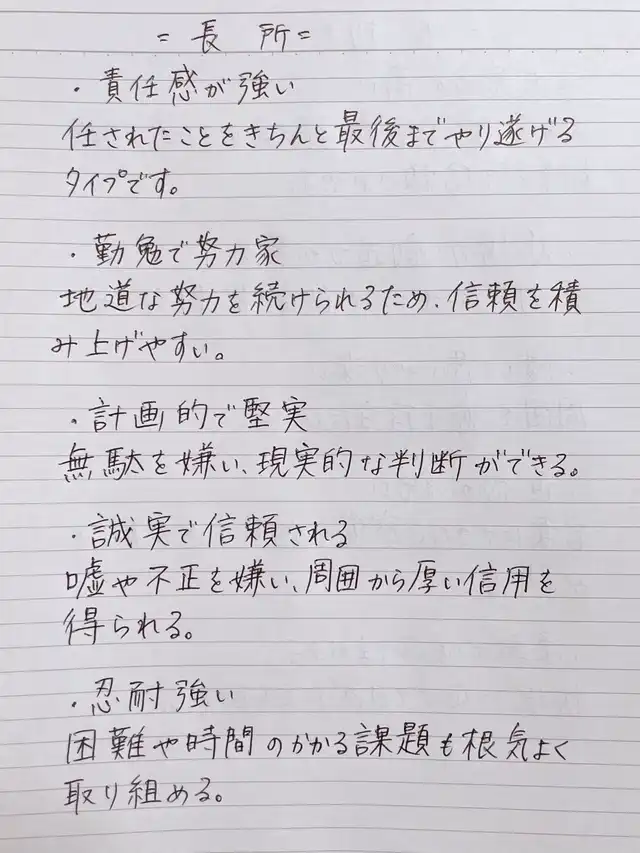 = 長 所 =
・責任感が強い
任されたことをきちんと最後までやり遂げる
タイプです。
・勤勉で努力家
地道な努力を続けられるため、信頼を積
み上げやすい。
・計画的で堅実
無駄を嫌い、現実的な判断ができる。
・誠実で信頼される
嘘や不正を嫌い、周囲から厚い信用を
得られる。
・忍耐強い
困難や時間のかかる課題も根気よく
取り組める。